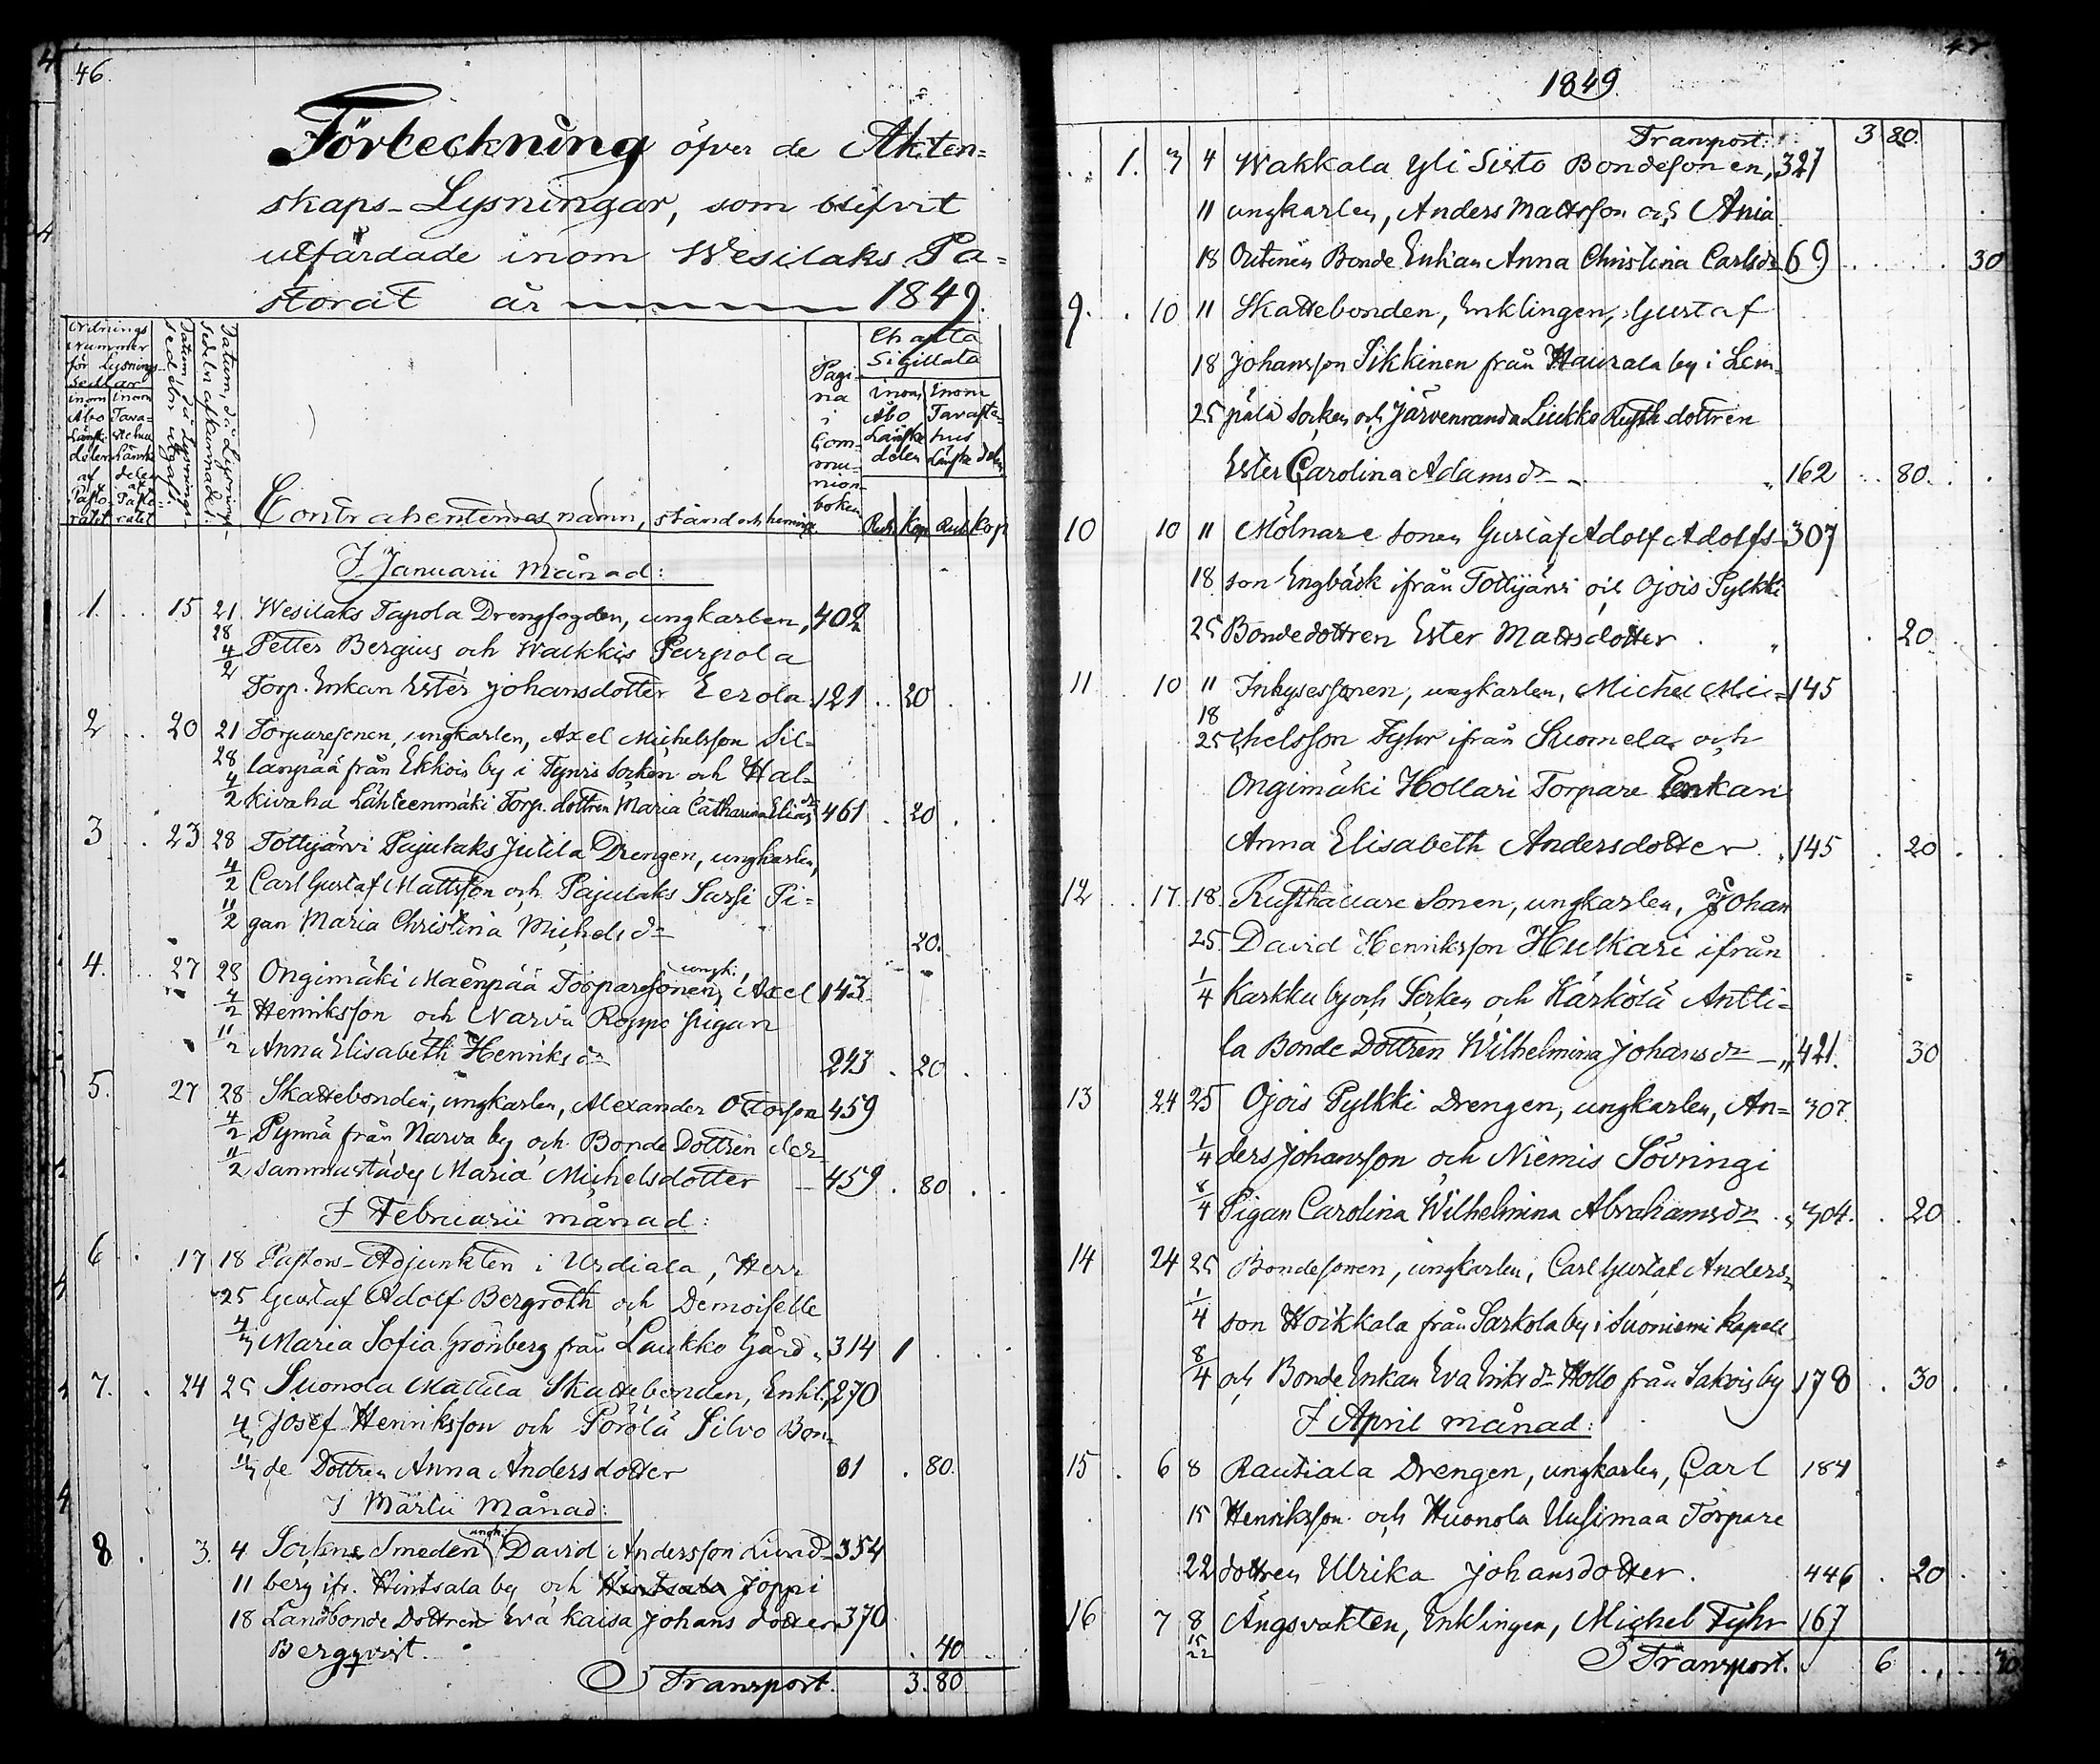 46.
Förteckning öfver de Äkten=
skaps-Lysningar, som blifvit
utfärdade inom Wesilaks Pa=
storat år 1849.
Ordnings Nummer för Lysnings-Sedlar
inom Åbo Länske delen af Pasto-ratet
inom Tavastehus Länske delen af Pasto-ratet
Datum då Lysnings-sedeln utgafs.
Datum, då Lysnings-Sedeln afkunnades.
Contrahenternes namn, stånd och hemvist.
Pagina i Communion-boken
Charta Sigillata
inom Åbo Länske delen
inom Tavastehus Länske delen
Rub. Kop. Rub. Kop
I Januarii Månad:
1. 15 21 Wesilaks Tapola Drengfogden, ungkarlen, 402
28 4/2 Petter Bergius och Walkkis Parpola
Torp. Enkan Ester Johansdotter Eerola 121 20
2 20 21 Torparesonen, ungkarlen, Axel Michelsson Sil=
28 lanpää från Ekkois by i Tyrvis Socken och Hal=
4/2 kivaha Lähteenmäki Torp. dottren Maria Catharina Elias dr 461 20
3 23 28 Tottijärvi Pajulaks Jutila Drengen, ungkarlen,
4/2 Carl Gustaf Mattsson och Pajulaks Sassi Pi=
11/2 gan Maria Christina Michels dr 20.
4. 27 28 Ongimäki Mäenpää Torparesonen, ungk. Axel 143
4/2 Henriksson och Narva Roppo pigan
11/2 Anna Elisabeth Henriks dr 243 20
5. 27 28 Skattebonden, ungkarlen, Alexander Ottosson 459
4/2 Pynnä från Narva by och Bonde Dottren der=
11/2 sammastädes Maria Michelsdotter 459 80
I Februarii månad:
6 17 18 Pastors-Adjunkten i Urdiala, Herr
25 Gustaf Adolf Bergroth och Demoiselle
4/3 Maria Sofia Grönberg från Laukko Gård 314 1
7. 24 25 Suonola Mattila Skattebonden, Enkl. 270
4/3 Josef Henriksson och Pörölä Silvo Bon=
11/3 de Dottren Anna Andersdotter 81 80.
I Martii Månad:
8 3. 4 Sockne Smeden ungk. David Andersson Lund= 354
11 berg ifr. Hintsala by och Joppi
18 Landbonde Dottren Eva Kaisa Johans dotter 370
Bergqvist. 40
Transport. 3. 80
47.
1849.
Transport: 3 80.
1. 3 4 Wakkala Yli Sisto Bondesonen, 327
11 ungkarlen, Anders Mattsson och Ania
18 Outinen Bonde Enkan Anna Christina Carlsdr 69 30
9. 10 11 Skattebonden, Enklingen, Gustaf
18 Johansson Sikkinen från Haurala by i Lem=
25 päla Socken och Järvenranda Liukko Rusth. dottren
Ester Carolina Adams dr 162 80.
10 10 11 Mölnare sonen Gustaf Adolf Adolfs= 307
18 son Engbäck ifrån Tottijärvi och Ojois Pylkki
25 Bondedottren Ester Mattsdotter 20.
11 10 11 Inhysessonen, ungkarlen, Michel Mi= 145
18
25 chelsson Tyhr ifrån Suomela och
Ongimäki Hollari Torpare Enkan
Anna Elisabeth Andersdotter 145 20
12 17 18. Rusthållare Sonen, ungkarlen, Johan
25. David Henriksson Hulkari ifrån
1/4 Karkku by och Socken och Kärkölä Antti=
la Bonde Dottren Wilhelmina Johans dr 421. 30
13 24 25 Ojois Pylkki Drengen, ungkarlen, An= 307.
1/4 ders Johansson och Niemis Sövringi
8/4 Pigan Carolina Wilhelmina Abrahams dr 304. 20
14 24 25 Bondesonen, ungkarlen, Carl Gustaf Anders=
1/4 son Hoikkala från Sarkola by i Suoniemi Kapell
8/4 och Bonde Enkan Eva Eriks dr Hollo från Sakois by 178 30
I April månad:
15 6 8 Rautiala Drengen, ungkarlen, Carl 184
15 Henriksson och Huonola Uusimaa Torpare
22 dottren Ulrika Johansdotter. 446 20
16 7 8 Ängsvakten, Enklingen, Michel Tyhr 167
15
22
Transport. 6 30